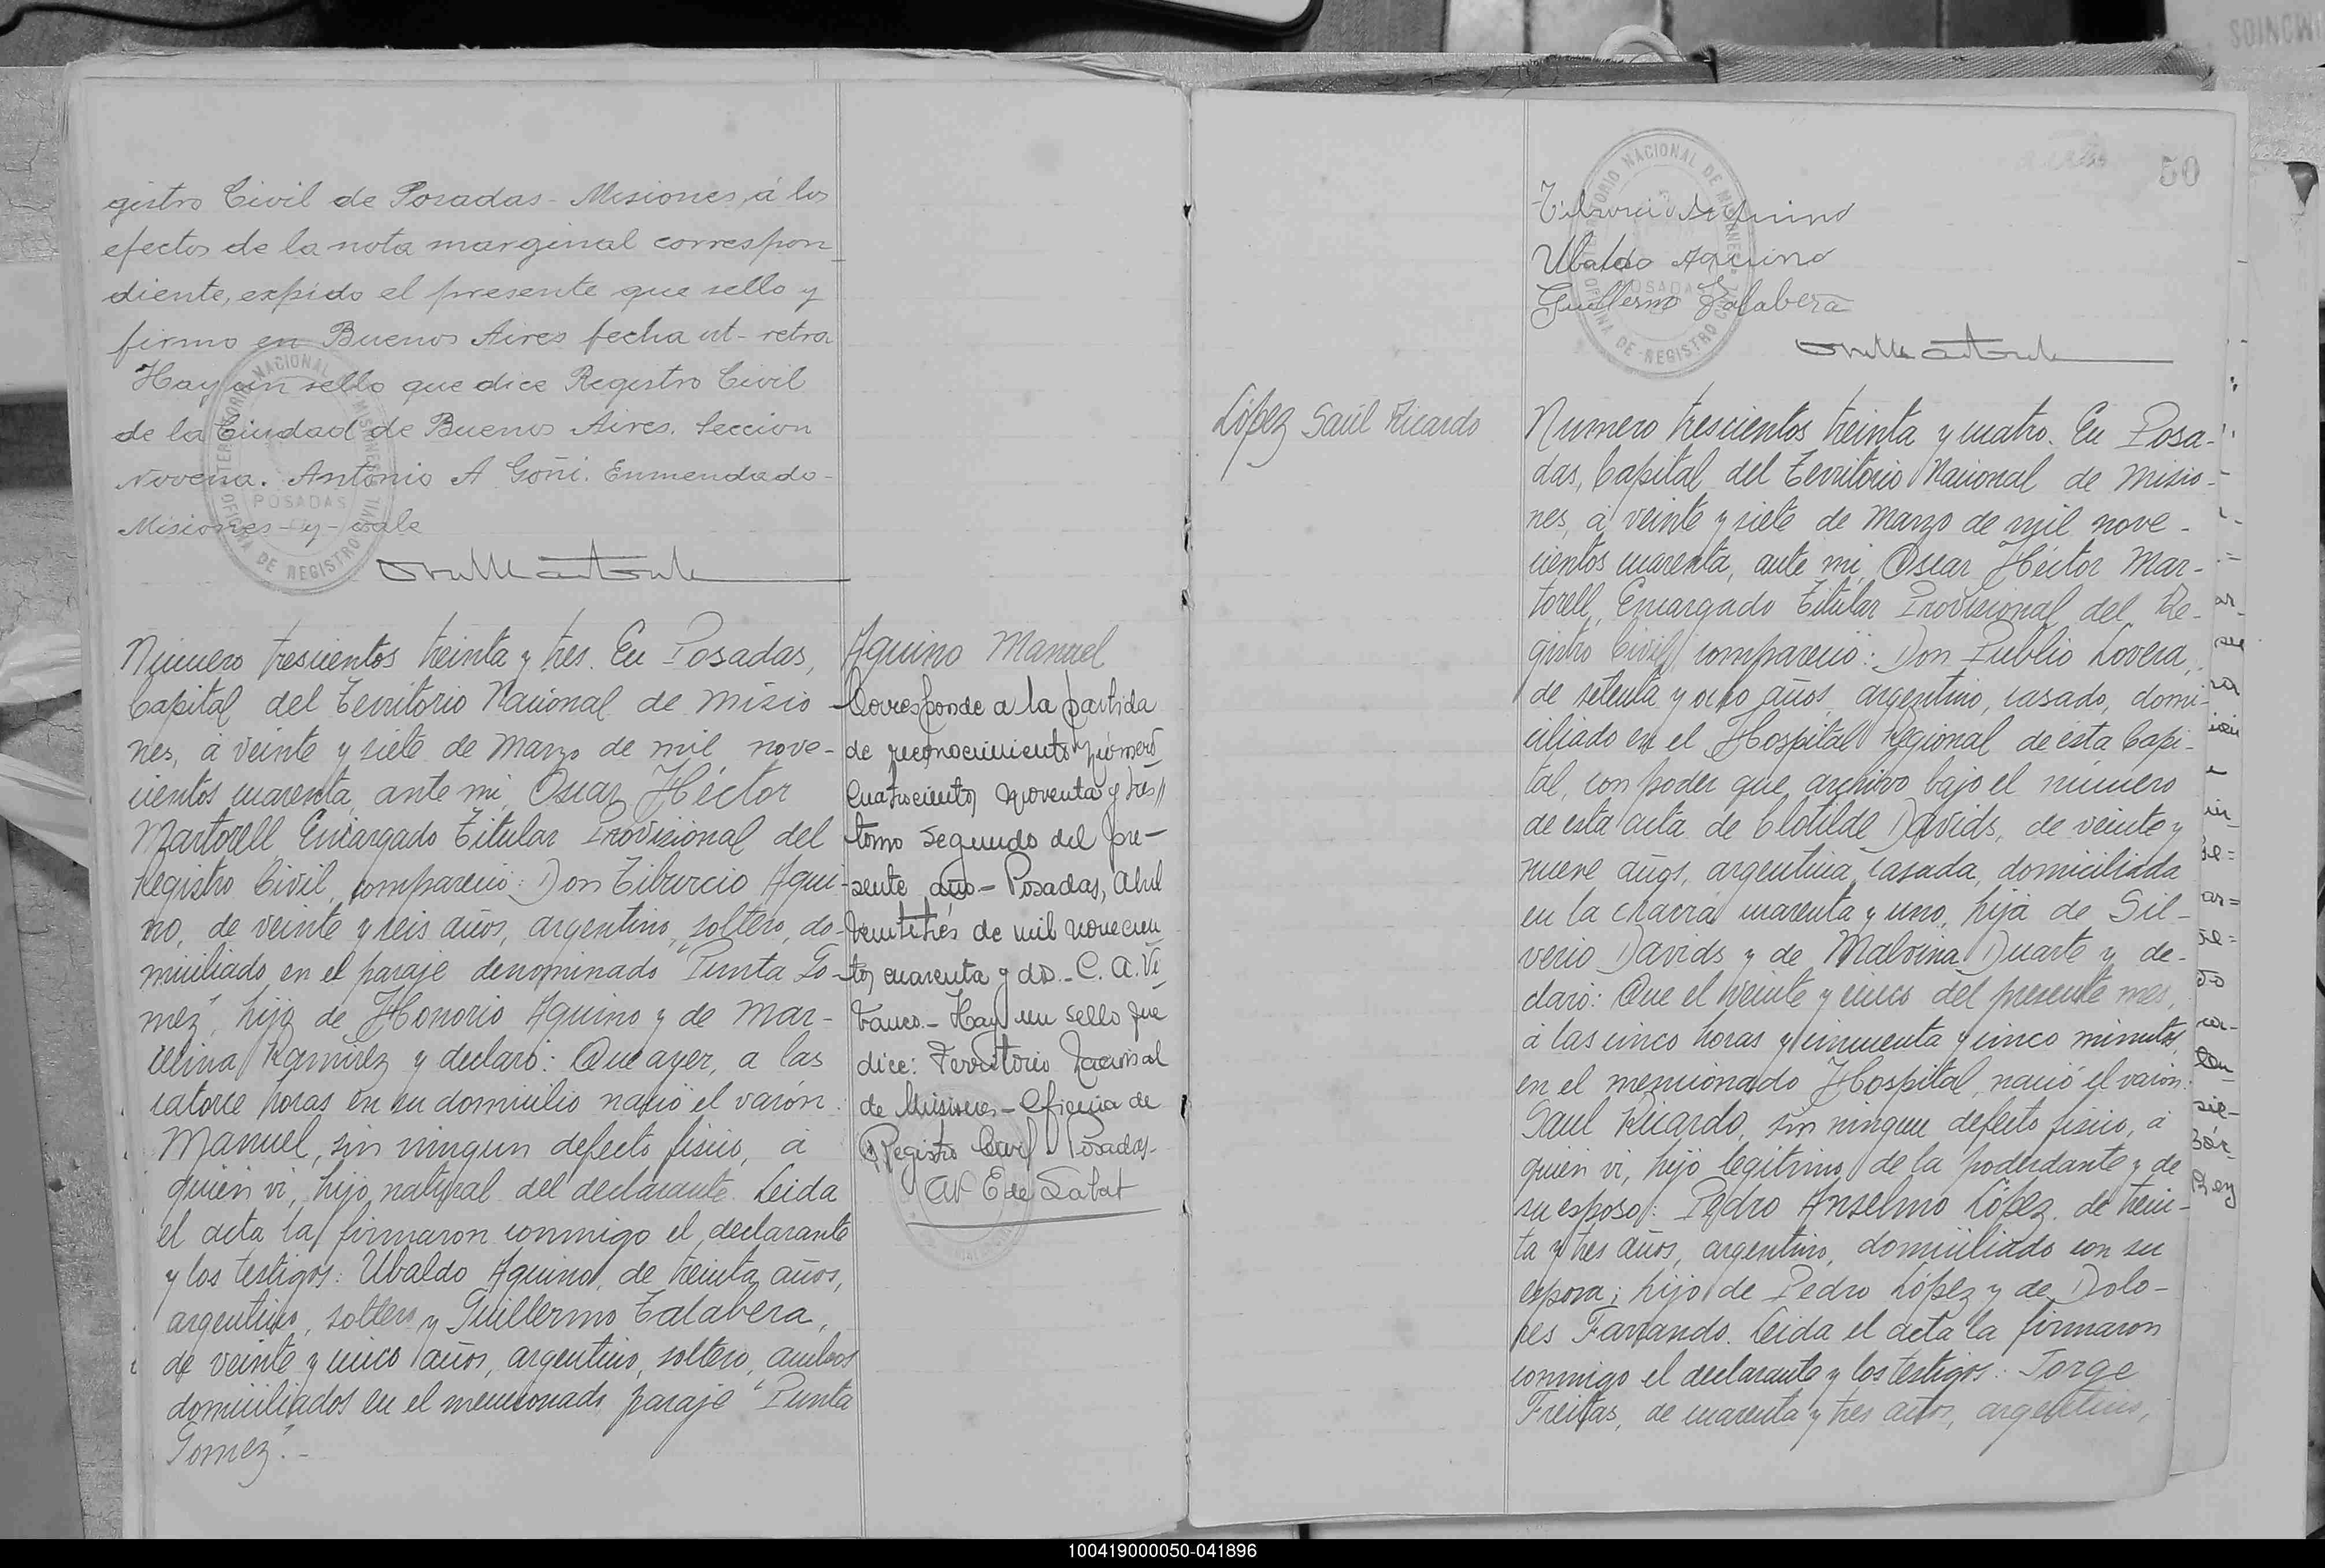 gistro Civil de Posadas - Misiones, á los
efectos de la nota marginal correspon
diente, expido el presente que sello y
firmo en Buenos Aires fecha ut - retro
Hay un sello que dice Registro Civil
de la Ciudad de Buenos Aires. Seccion
Novena. Antonio A Goñi. Enmendado -
Misiones - y - vale
Número trescientos treinta y tres. En Posadas,
Capital del Territorio Nacional de Misio
nes, á veinte y siete de Marzo de mil nove-
cientos cuarenta, ante mí, Oscar Héctor
Martorell Encargado Titular Provisional del
Registro Civil, compareció: Don Tiburcio Aqui-
no, de veinte y seis años, argentino, soltero, do-
miciliado en el paraje denominado "Punta Go-
mez", hijo de Honorio Aquino y de Mar-
celina Ramírez y declaró: Que ayer, a las
catorce horas en su domicilio nació el varón:
Manuel, sin ningun defecto físico, á
quien vi, hijo natural del declarante. Leida
el acta la firmaron conmigo el declarante
y los testigos: Ubaldo Aquino, de treinta años,
argentino, soltero y Guillermo Talabera,
de veinte y cinco años, argentino, soltero, ambos
domiciliados en el mencionado paraje "Punta
Gomez". -
Aquino Manuel
Corresponde a la partida
de reconocimiento número
Cuatrocientos noventa y tres //
tomo segundo del pre-
sente año - Posadas, Abril
veintitrés de mil novecien
tos cuarenta y dos - C. A. Vi
vanco. - Hay un sello que
dice: Territorio Nacional
de Misiones - Oficina de
Registro Civil - Posadas -
E de Labat
TERRITORIO NACIONAL DE MISIONES
POSADAS
OFICINA DE REGISTRO CIVIL
50
Tiburcio Aquino
Ubaldo Aquino
Guillermo Talabera
TERRITORIO NACIONAL DE MISIONES
POSADAS
OFICINA DE REGISTRO CIVIL
López Saúl Ricardo
Numero trescientos treinta y cuatro. En Posa-
das, Capital del Territorio Nacional de Misio-
nes, á veinte y siete de Marzo de mil nove-
cientos cuarenta, ante mí, Oscar Héctor Mar-
torell, Encargado Titular Provisional del Re-
gistro Civil, compareció: Don Publio Lovera,
de setenta y ocho años, argentino, casado, domi-
ciliado en el Hospital Regional de ésta Capi-
tal, con poder que archivo bajo el número
de esta acta de Clotilde Davids, de veinte y
nueve años, argentina, casada, domiciliada
en la chacra cuarenta y uno, hija de Sil-
verio Davids y de Malvina Duarte y de-
claró: Que el veinte y cinco del presente mes,
á las cinco horas y cincuenta y cinco minutos,
en el mencionado Hospital, nació el varón:
Saul Ricardo, sin ningun defecto físico, á
quien vi, hijo legítimo de la poderdante y de
su esposo: Pedro Anselmo López, de trein-
ta y tres años, argentino, domiciliado con su
esposa; hijo de Pedro López y de Dolo-
res Farrando. Leida el acta la firmaron
conmigo el declarante y los testigos: Jorge
Freitas, de cuarenta y tres años, argentino,
100419000050-041896